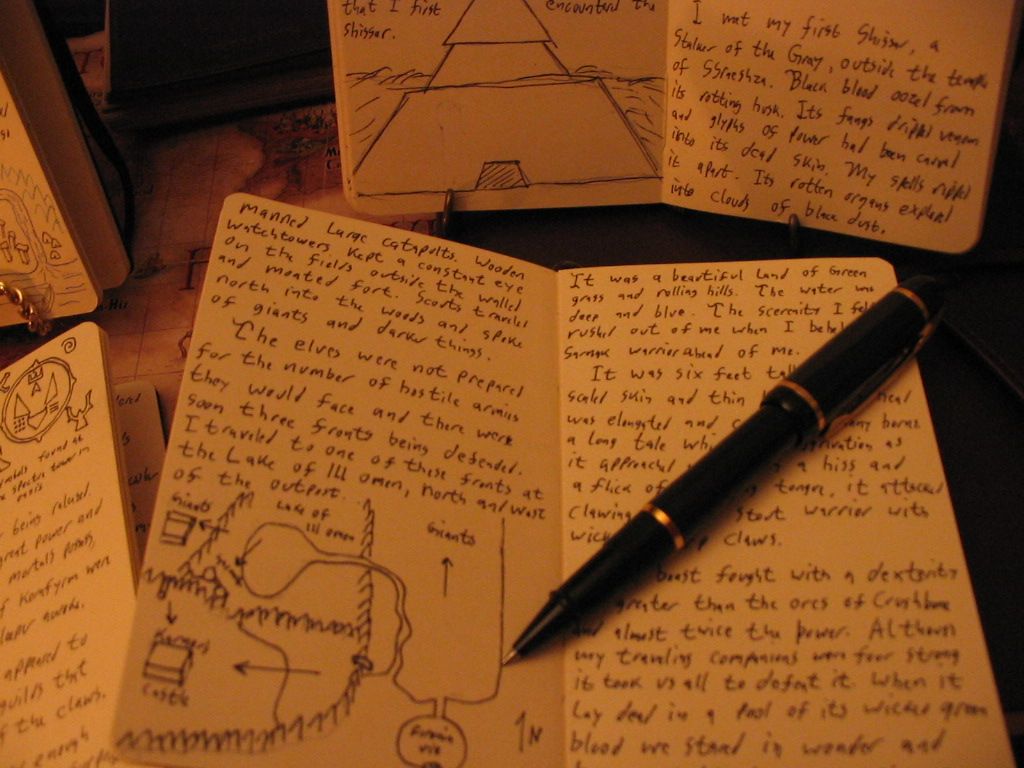 that I first encountered the
Shissar.
I met my first Shissar, a
Stalker of the Gray, outside the temple
of SSraeshza. Black blood oozed from
its rotting husk. Its fangs dripped venom
and glyphs of power had been carved
into its dead skin. My spells ripped
it apart. Its rotten organs exploded
into clouds of black dust.
manned large catapults. Wooden
watchtowers kept a constant eye
on the fields outside the walled
and moated fort. Scouts traveled
north into the woods and spoke
of giants and darker things.
The elves were not prepared
for the number of hostile armies
they would face and there were
soon three fronts being defended.
I traveled to one of these fronts at
the Lake of Ill omen, north and west
of the outpost.
Giants
Lake of
Ill omen
Giants
Sarnak
Castle
Firiona
Vie
N
It was a beautiful land of Green
grass and rolling hills. The water was
deep and blue. The scerenity I felt
rushed out of me when I beheld
Sarnak warrior ahead of me.
It was six feet tall
scaled skin and thin head
was elongated and many horns
a long tale
it approached a hiss and
a flick of tongue, it attacked
Clawing warrior with
claws.
beast fought with a dexterity
greater than the orcs of Crushbone
and almost twice the power. Although
my traveling companions were four strong
it took us all to defeat it. When it
lay dead in a pool of its wicked green
blood we stand in wonder and
symbols found at
spectre tower in
being released.
great power and
mortals
of Kerafyrm were
sleeper awoke.
appeared to
guilds that
of the claws.
enough